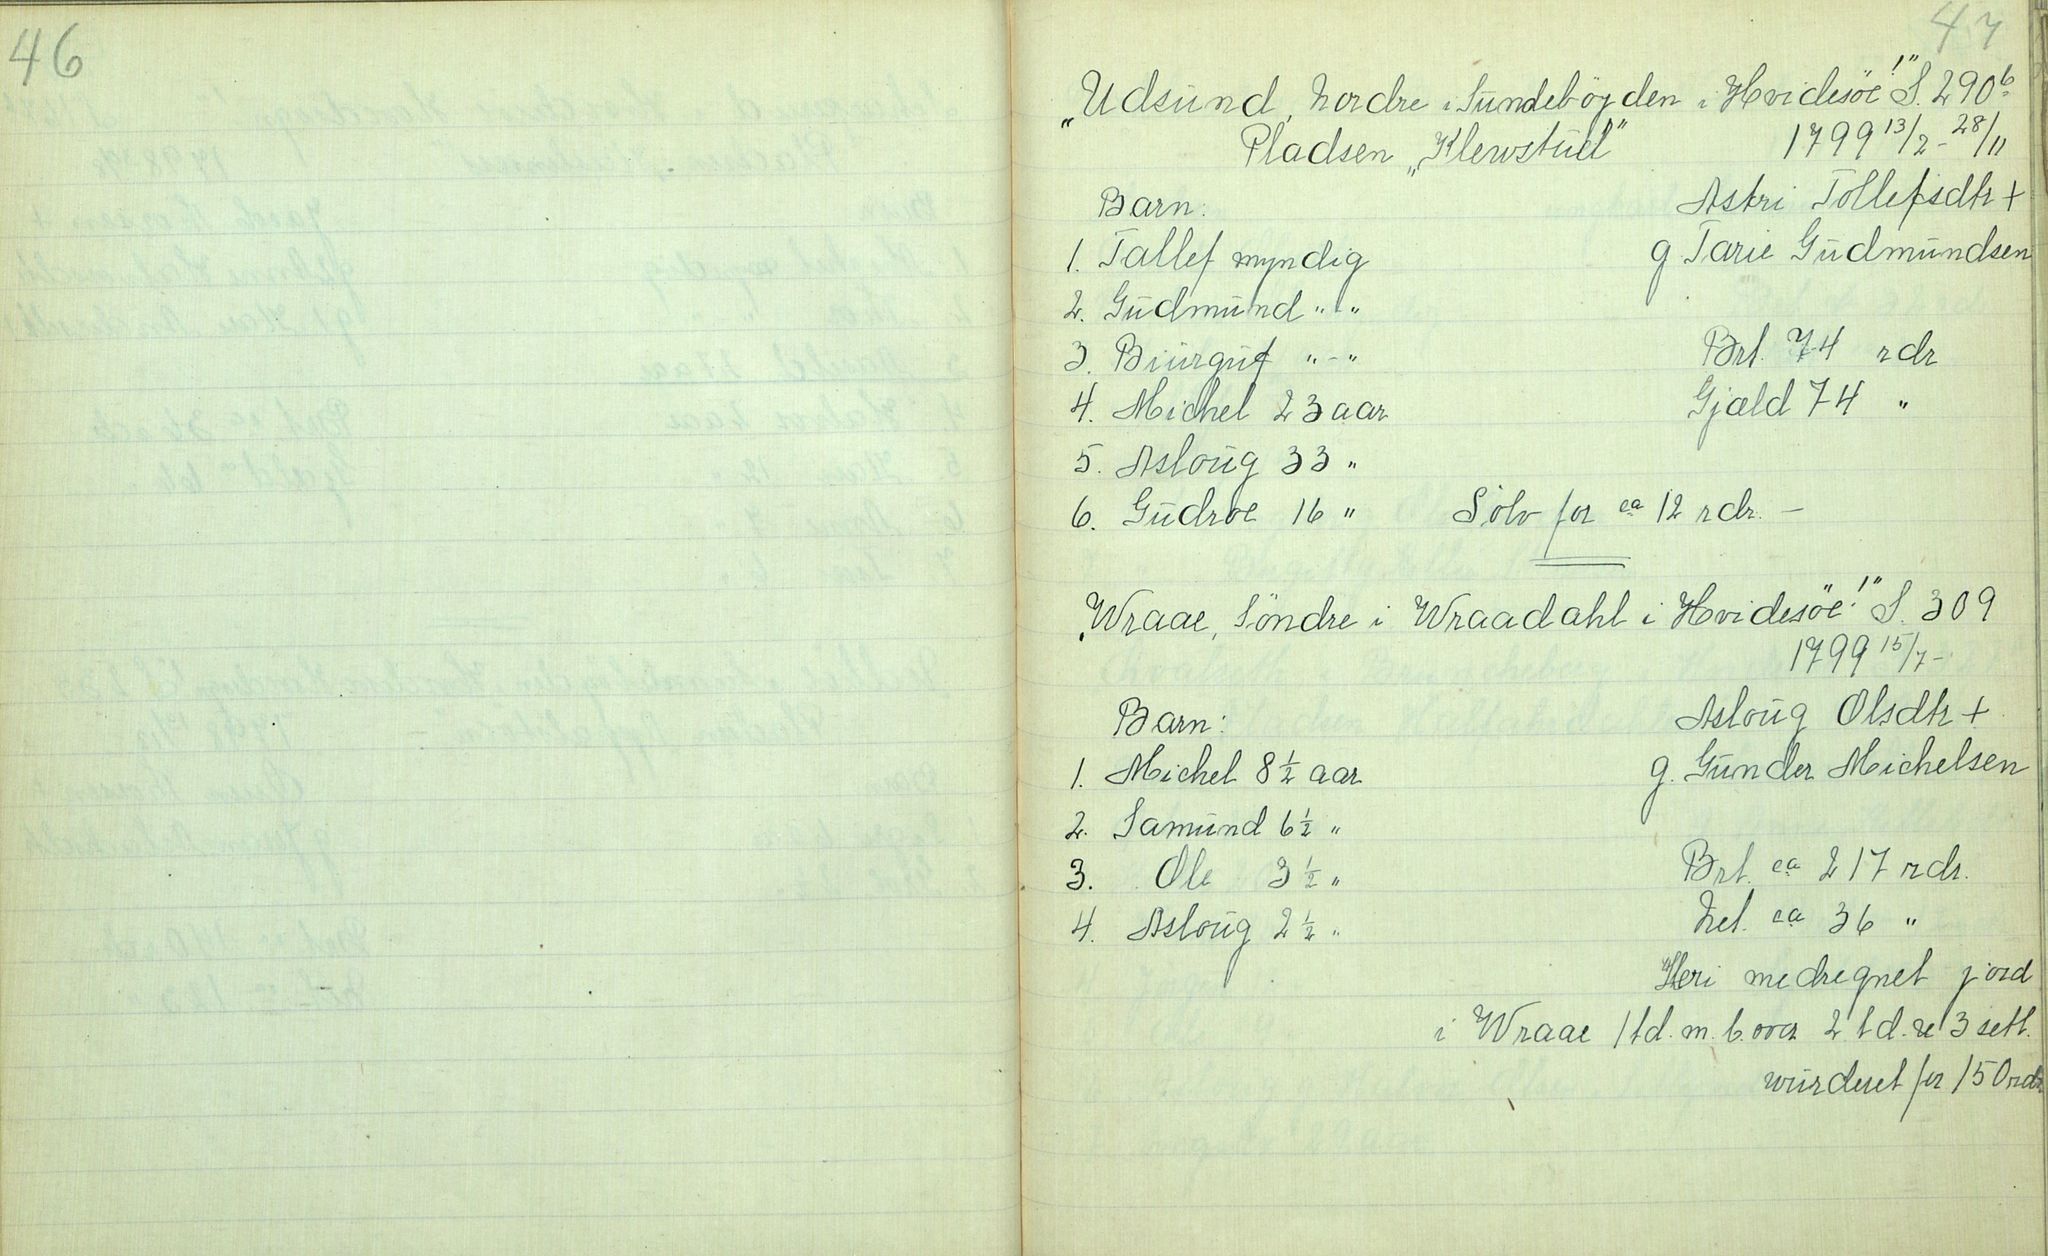 46
47
„Udsund, Nordre i Sundebøyden i Hvidesöe!" S. 290b
Pladsen „Klewstuel" 1799 13/2 - 28/11
Barn: Astri Tollefsdtr +
1. Tallef myndig g. Tarie Gudmundsen
2. Gudmund " - "
3. Biürguf " - " Brt. 74 rdr
4. Michel 23 aar Gjæld 74 "
5. Asloug 33 "
6. Gudroe 16 " Sølv for ca 12 rdr. -
„Wraae, Söndre i Wraadahl i Hvidesöe!" S. 309
1799 15/7 -
Barn: Asloug Olsdtr +
1. Michel 8 1/2 aar g. Gunder Michelsen
2. Samund 6 1/2 "
3. Ole 3 1/2 " Brt. ca 217 rdr.
4. Asloug 2 1/2 " Net. ca 36 "
Heri medregnet jord
i Wraae 1 td. m. b. over 2 td. re 3 setl.
wurderet for 150 rdr